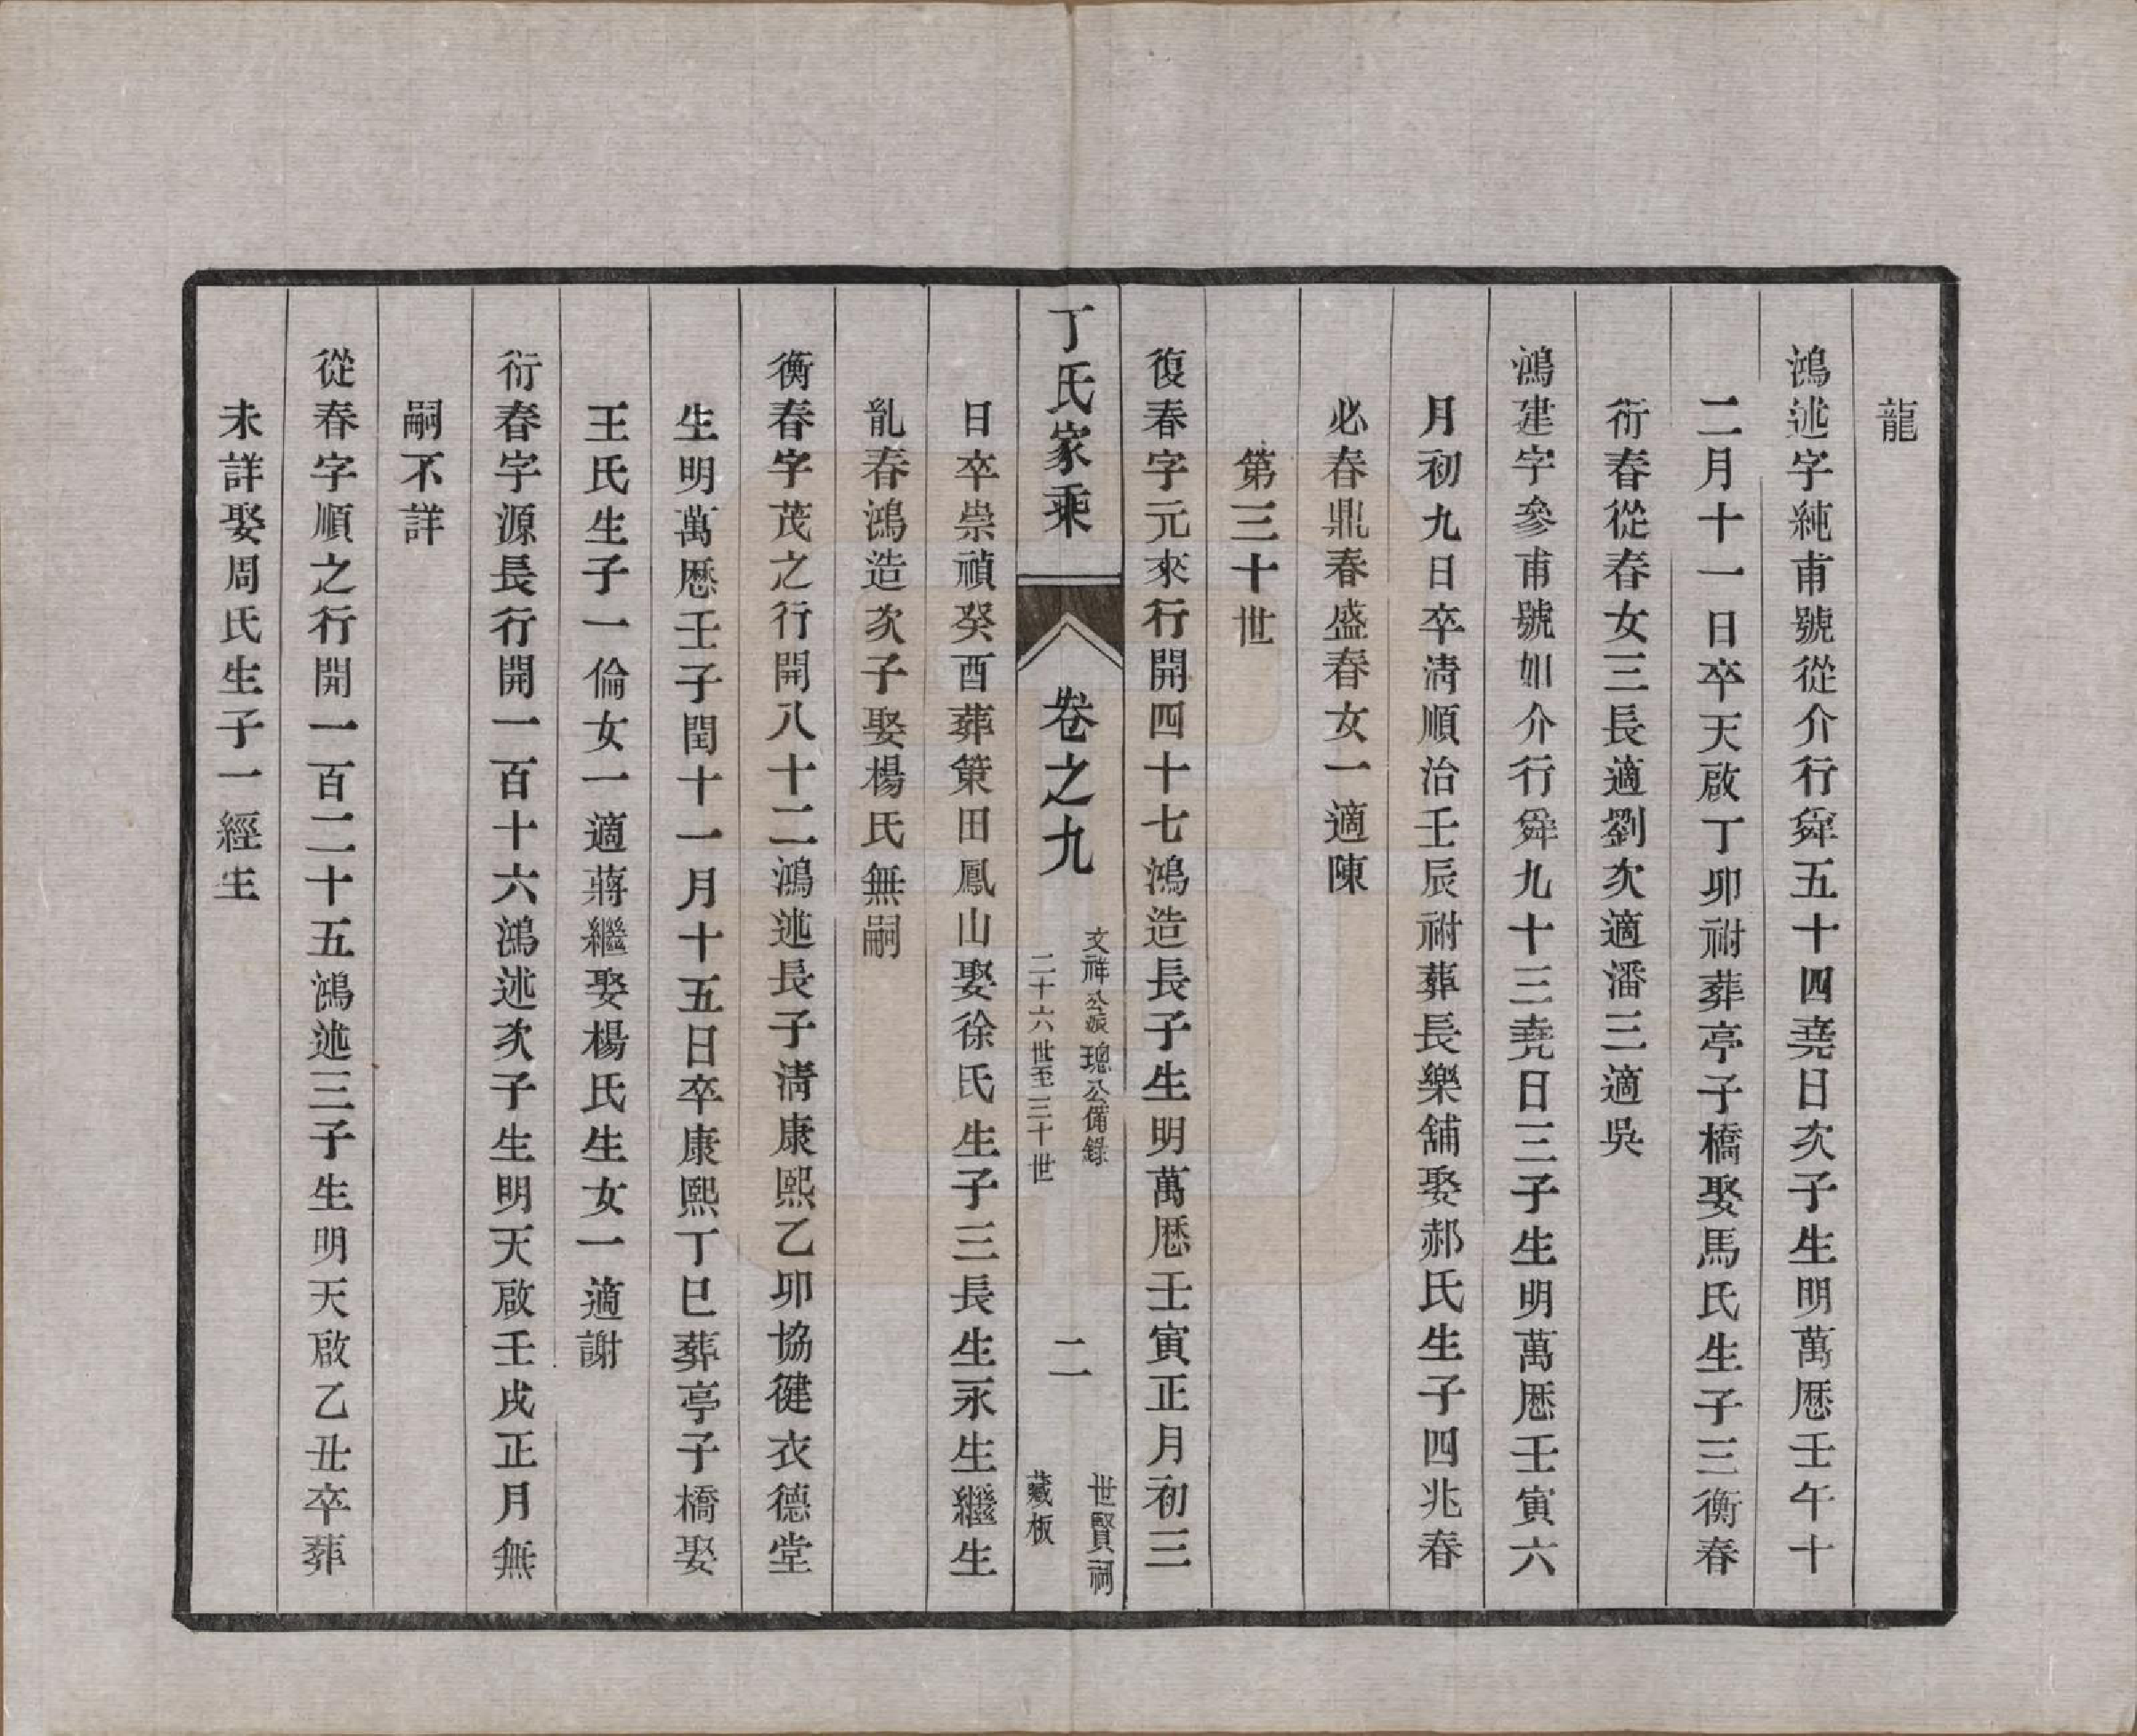 龍
鴻述字純甫號從介行舜五十四堯日次子生明萬厯壬午十
二月十一日卒天啟丁卯祔葬亭子橋娶馬氏生子三衡春
衍春從春女三長適劉次適潘三適吳
鴻建字參甫號如介行舜九十三堯日三子生明萬厯壬寅六
月初九日卒淸順治壬辰祔葬長樂舖娶郝氏生子四兆春
必春鼎春盛春女一適陳
第三十世
復春字元來行開四十七鴻造長子生明萬厯壬寅正月初三
丁氏家乘
卷之九
文祥公派璁公備錄
二十六世至三十世
二
世賢祠
藏板
日卒崇禎癸酉葬策田鳳山娶徐氏生子三長生永生繼生
亂春鴻造次子娶楊氏無嗣
衡春字茂之行開八十二鴻述長子淸康熙乙卯協徤衣德堂
生明萬厯壬子閏十一月十五日卒康熙丁巳葬亭子橋娶
王氏生子一倫女一適蔣繼娶楊氏生女一適謝
衍春字源長行開一百十六鴻述次子生明天啟壬戌正月無
嗣不詳
從春字順之行開一百二十五鴻述三子生明天啟乙丑卒葬
未詳娶周氏生子一經生